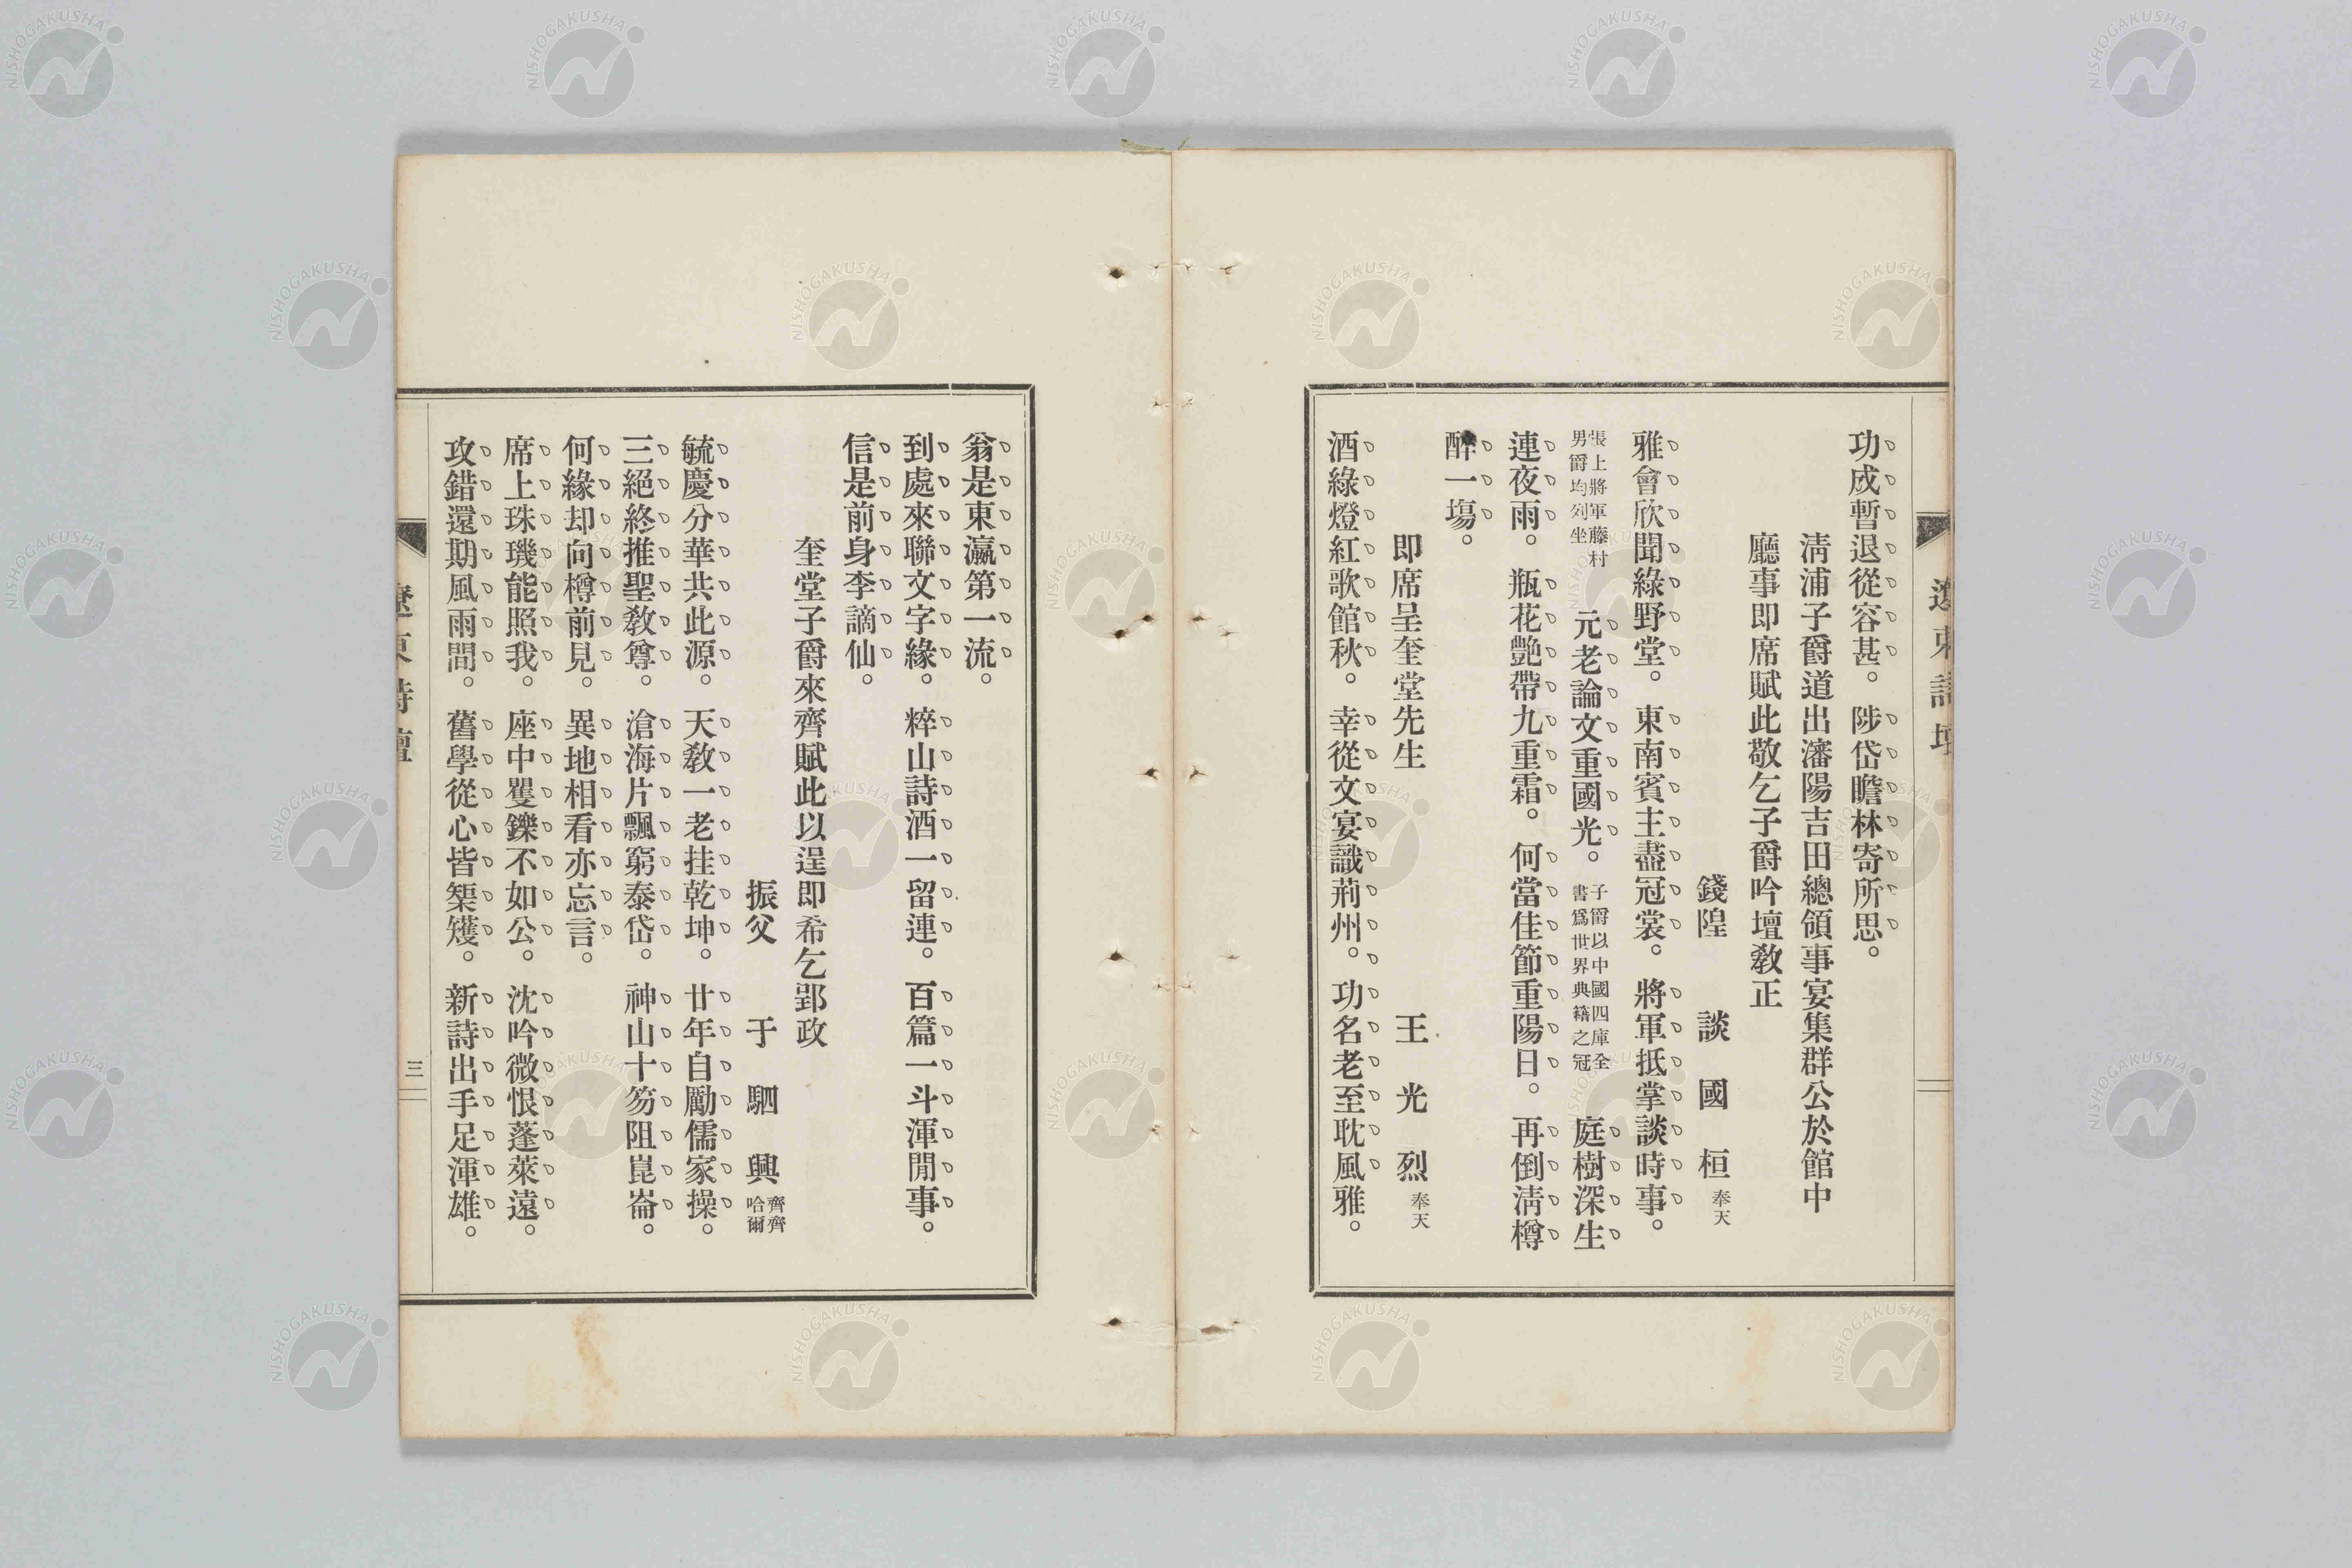 遼東詩壇
功成暫退從容甚。陟岱瞻林寄所思。
淸浦子爵道出瀋陽吉田總領事宴集群公於館中
廳事即席賦此敬乞子爵吟壇敎正
錢隍 談國桓 奉天
雅會欣聞綠野堂。東南賓主盡冠裳。將軍抵掌談時事。
張上將軍藤村男爵均列坐 元老論文重國光。子爵以中國四庫全書爲世界典籍之冠 庭樹深生
連夜雨。瓶花艷帶九重霜。何當佳節重陽日。再倒淸樽
醉一塲。
即席呈奎堂先生
王光烈 奉天
酒綠燈紅歌館秋。幸從文宴識荊州。功名老至耽風雅。
翁是東瀛第一流。
到處來聯文字緣。粹山詩酒一留連。百篇一斗渾閒事。
信是前身李謫仙。
奎堂子爵來齊賦此以逞即希乞郢政
振父 于駟興 齊齊哈爾
毓慶分華共此源。天敎一老挂乾坤。廿年自勵儒家操。
三絕終推聖敎尊。滄海片飄窮泰岱。神山十笏阻崑崙。
何緣却向樽前見。異地相看亦忘言。
席上珠璣能照我。座中矍鑠不如公。沈吟微恨蓬萊遠。
攻錯還期風雨間。舊學從心皆榘矱。新詩出手足渾雄。
遼東詩壇
三
NISHOGAKUSHA